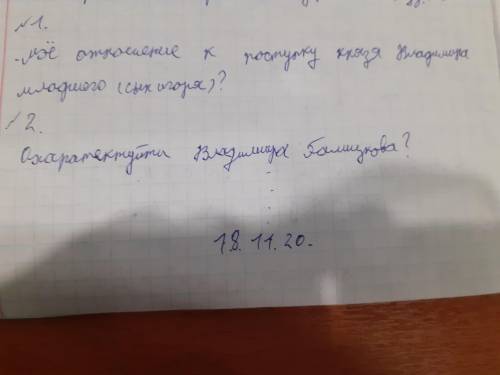 №1.
- Моё отношение к поступку князя Владимира
младшого (сын игоря)?
№2.
Охарактектуйти Владимира Галицкова?
18.11.20.